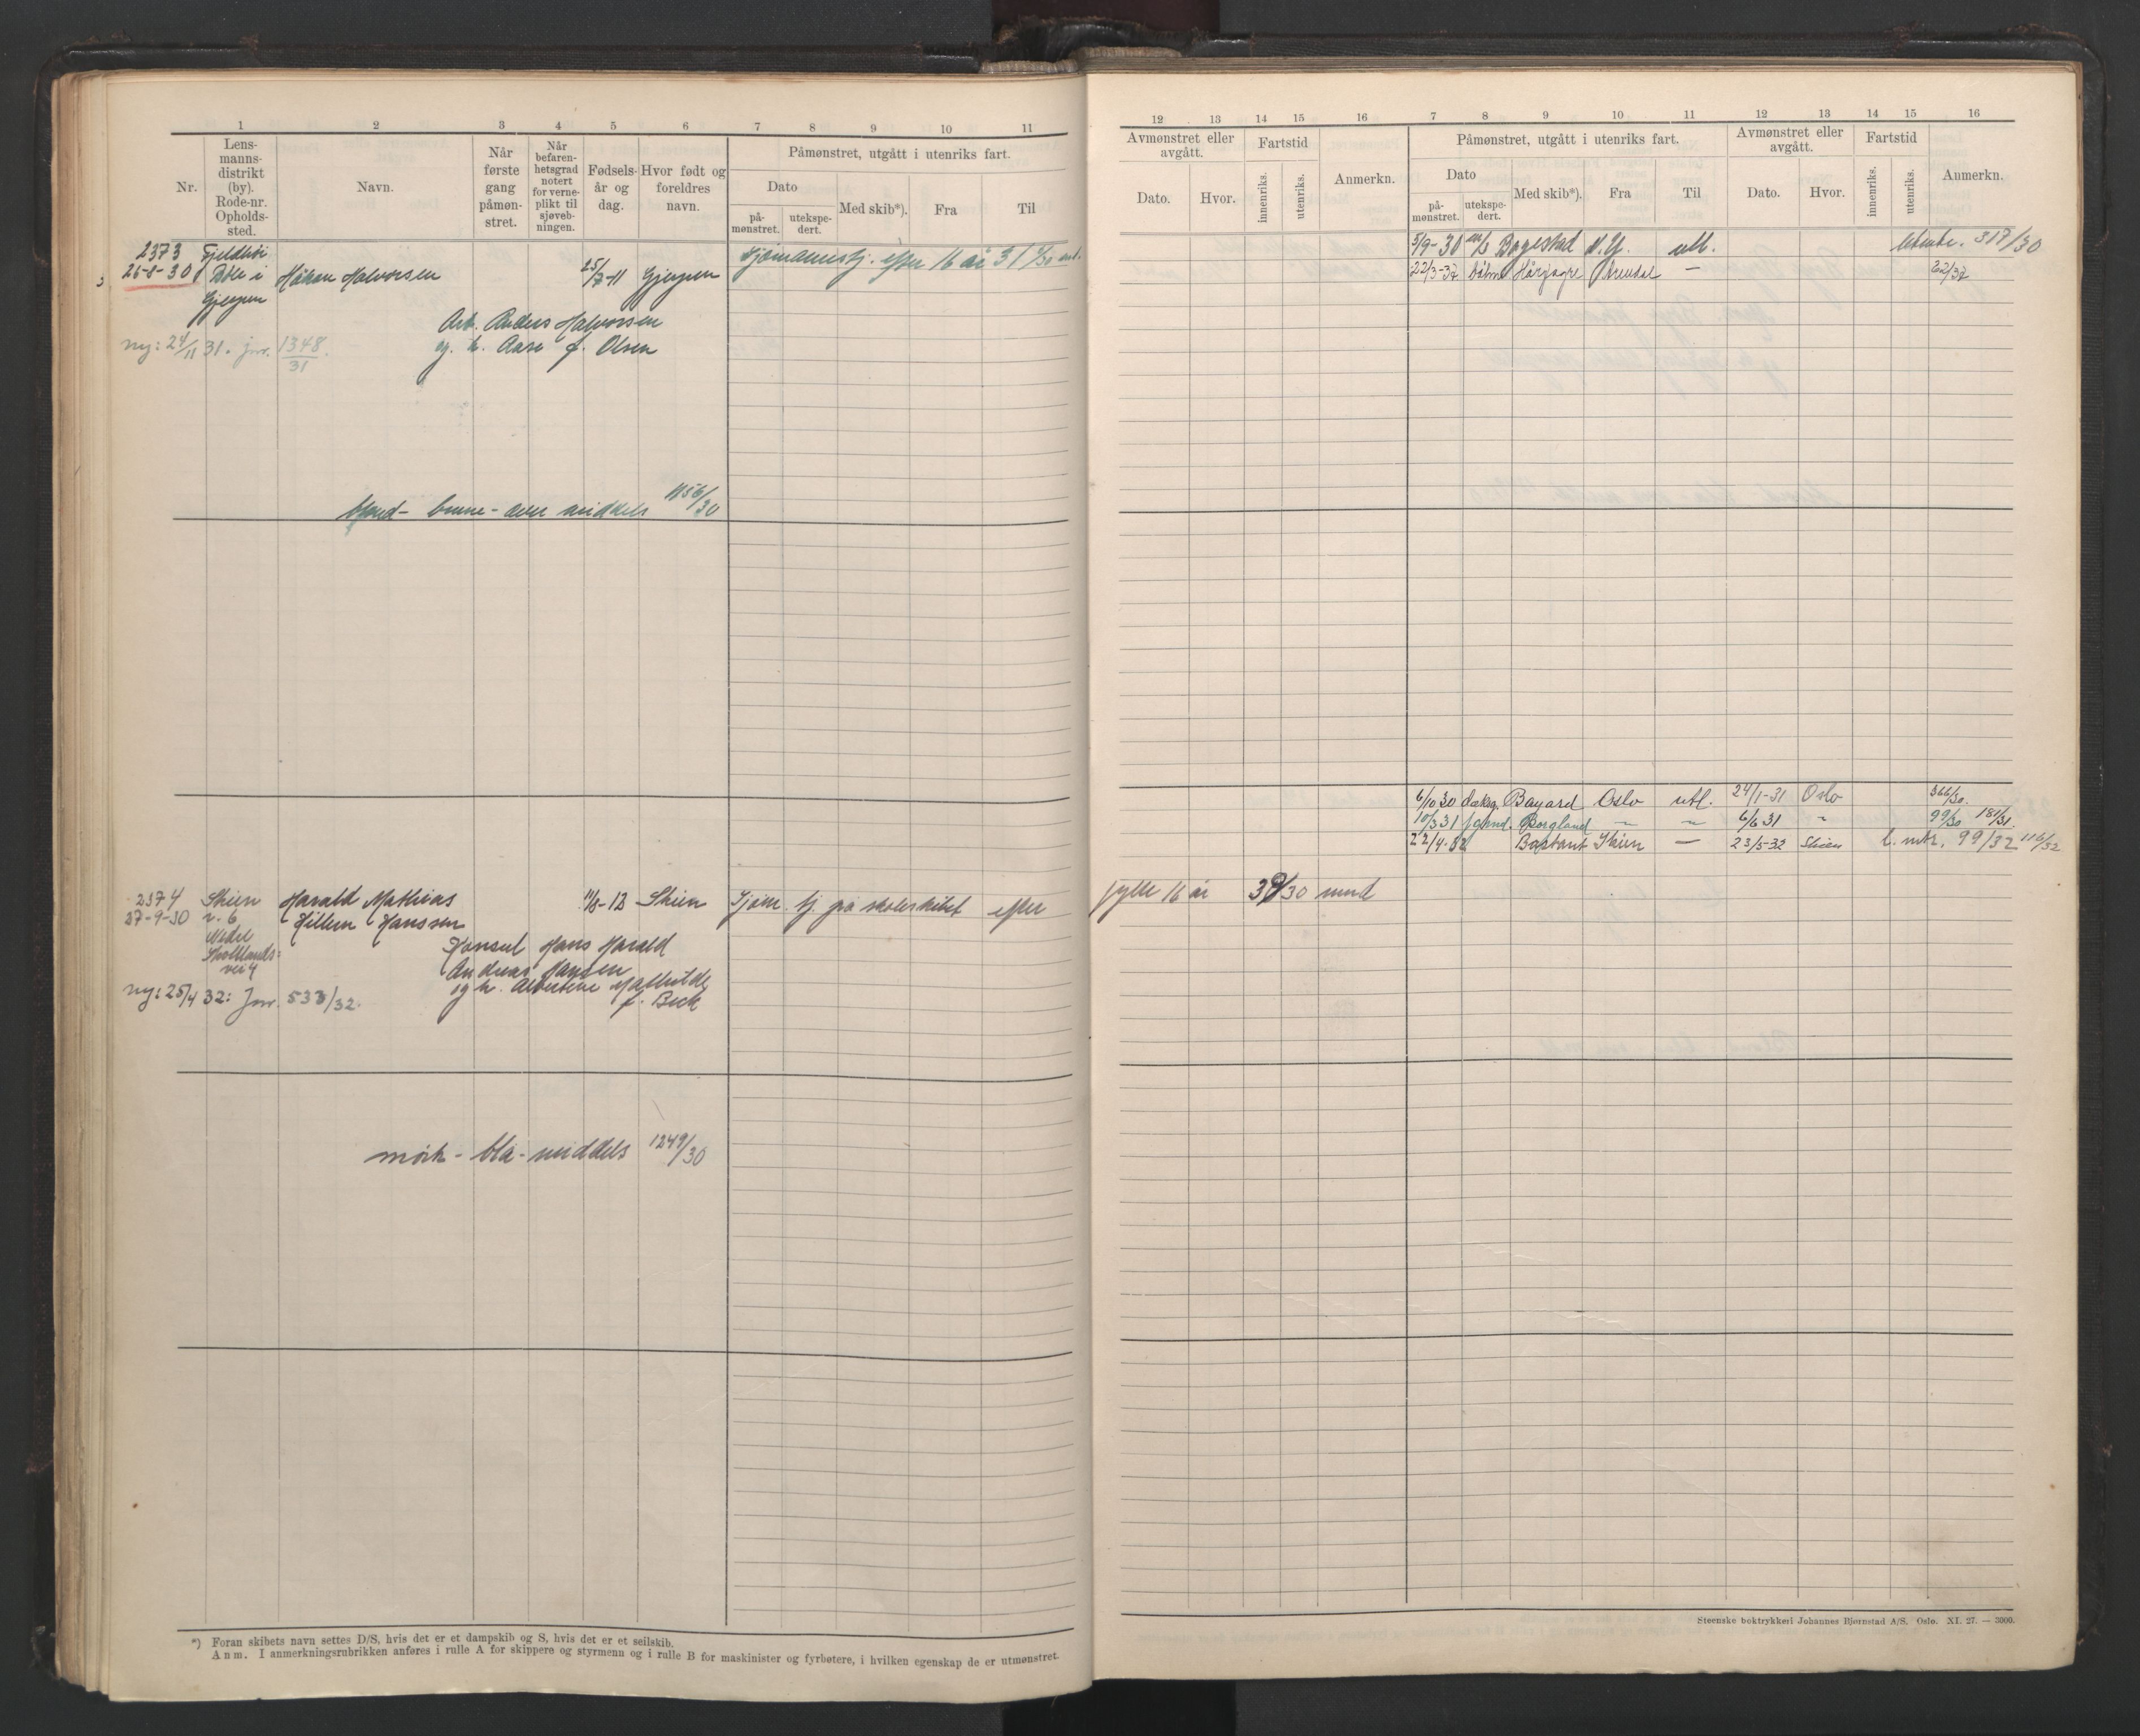 1 2 3 4 5 6 7 8 9 10 11
Nr.
Lens-
manns-
distrikt
(by).
Rode-nr.
Opholds-
sted.
Navn.
Når
første
gang
påmøn-
stret.
Når
befaren-
hetsgrad
notert
for verne-
plikt til
sjøveb-
ningen.
Fødsels-
år og
dag.
Hvor født og
foreldres
navn.
Påmønstret, utgått i utenriks fart.
Dato
på-
mønstret.
utekspe-
dert.
Med skib*).
Fra
Til
2373 Fjeldhøi
26-8-30 Bøle i Håkon Halvorsen 25/7-11 Gjerpen
Gjerpen
Sjømannstj. efter 16 år 31
Arb. Anders Halvorsen
og h. Aase f. Olsen
ny: 24/11 31. jnr. 1348/31.
blond - brune - over middels 1156/30
2374 Skien Harald Mathias 11/8-12 Skien Sjøm. tj. på skoleskibet efter
27-9-30 r. 6 Hillem Hanssen
Nedel
Skotlands-
vei 4
Konsul Hans Harald
Andreas Hansen
og h. Albertine Mathilde
f. Beck
ny: 25/4 32: Jnr. 533/32.
mørk - blå - middels 1249/30
*) Foran skibets navn settes D/S, hvis det er et dampskib og S, hvis det er et seilskib.
Anm. I anmerkningsrubrikken anføres i rulle A for skippere og styrmenn og i rulle B for maskinister og fyrbøtere, i hvilken egenskap de er utmønstret.
12 13 14 15 16 7 8 9 10 11 12 13 14 15 16
Avmønstret eller
avgått.
Dato.
Hvor.
Fartstid
innenriks.
utenriks.
Anmerkn.
Påmønstret, utgått i utenriks fart.
Dato
på-
mønstret.
utekspe-
dert.
Med skib*).
Fra
Til
Avmønstret eller
avgått.
Dato.
Hvor.
Fartstid
innenriks.
utenriks.
Anmerkn.
5/9-30 Bogestad N.Y. utl. 317/30
22/3-32 Arendal — 22/32
6/10 30 Bayard Oslo utl. 24/1-31 Oslo 366/30.
10/3 31 Borgland " " 6/6 31 " 99/30 181/31.
22/4-32 Bastant Skien — 23/5-32 Skien l. mtr. 99/32 116/32
fylte 16 år
Steenske boktrykkeri Johannes Bjørnstad A/S. Oslo. XI. 27. — 3000.